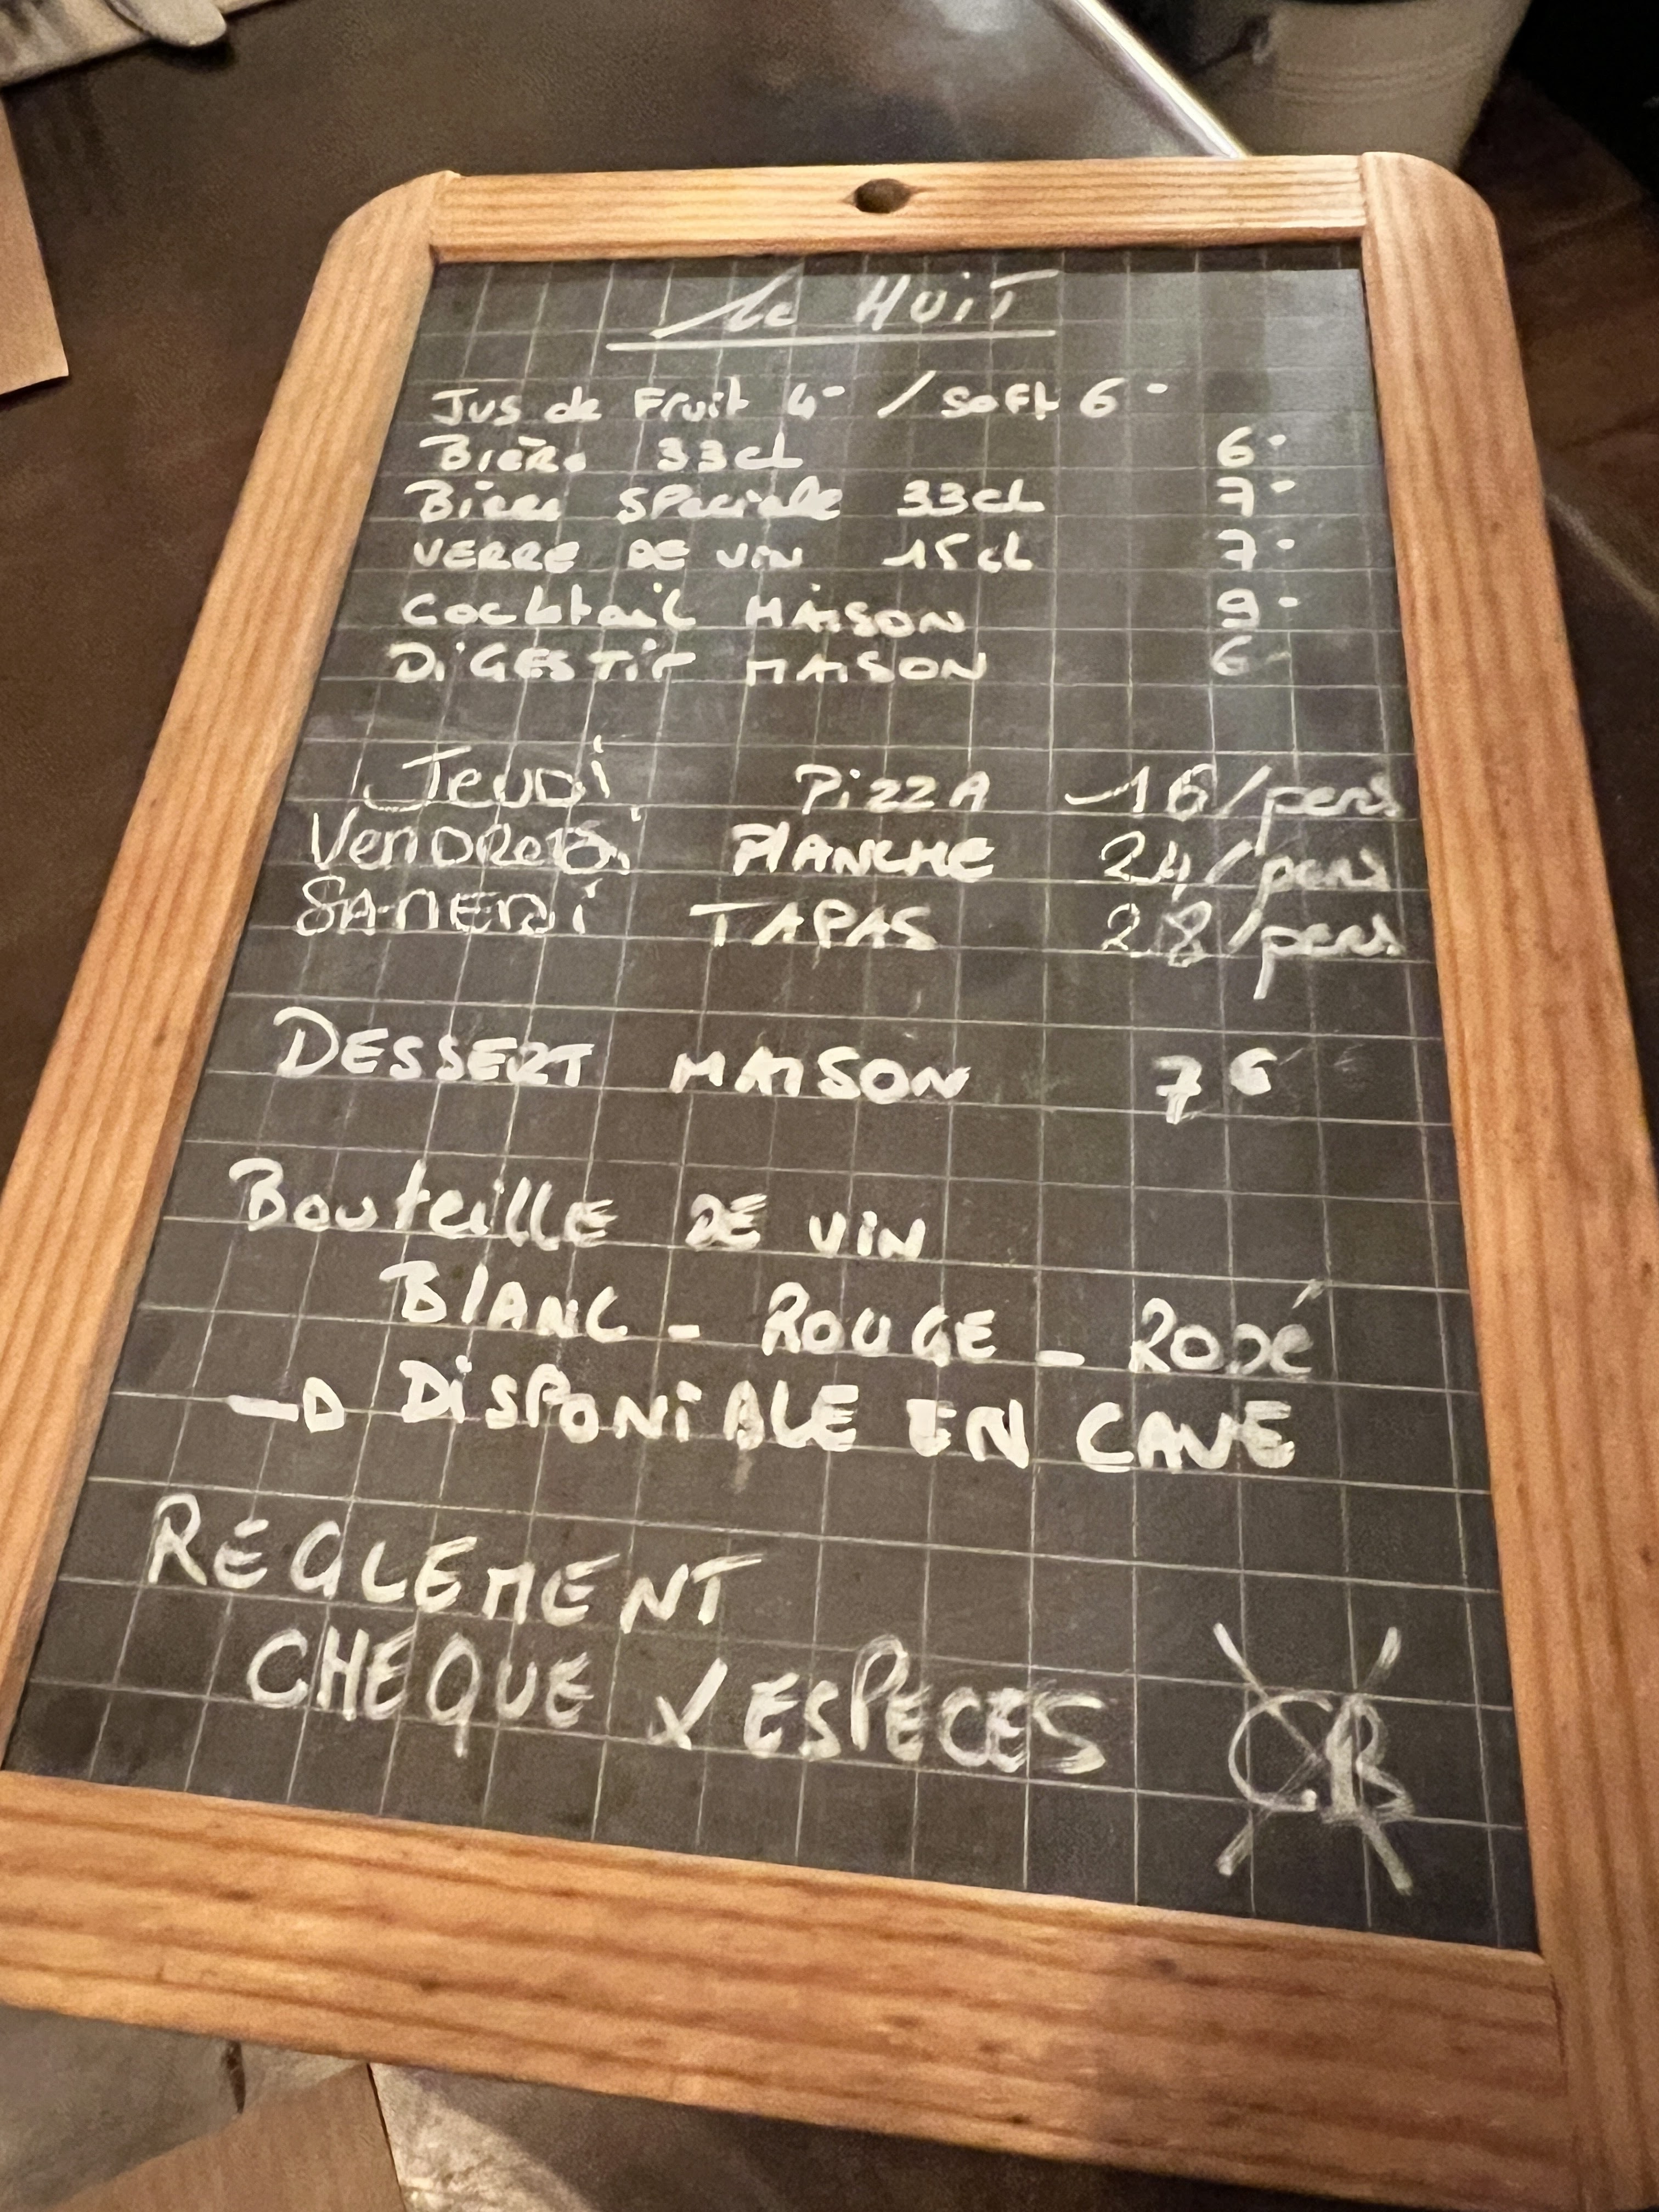 Le HUiT
Jus de Fruit 4- / soft 6-
Bière 33cL 6-
Biere speciale 33cL 7-
VERRE DE ViN 15cL 7-
Cocktail MAiSON 9-
DiGESTiF MAiSON 6-
JeuDi PiZZA 16/pers
VenDReDi PlANCHE 24/pers
SAMEDi TAPAS 28/pers
DESSERT MAiSON 7€
BouteillE DE ViN
BlANC - ROUGE - ROSé
→ DiSPONiBLE EN CAVE
REGLEMENT
CHEQUE / ESPECES CB